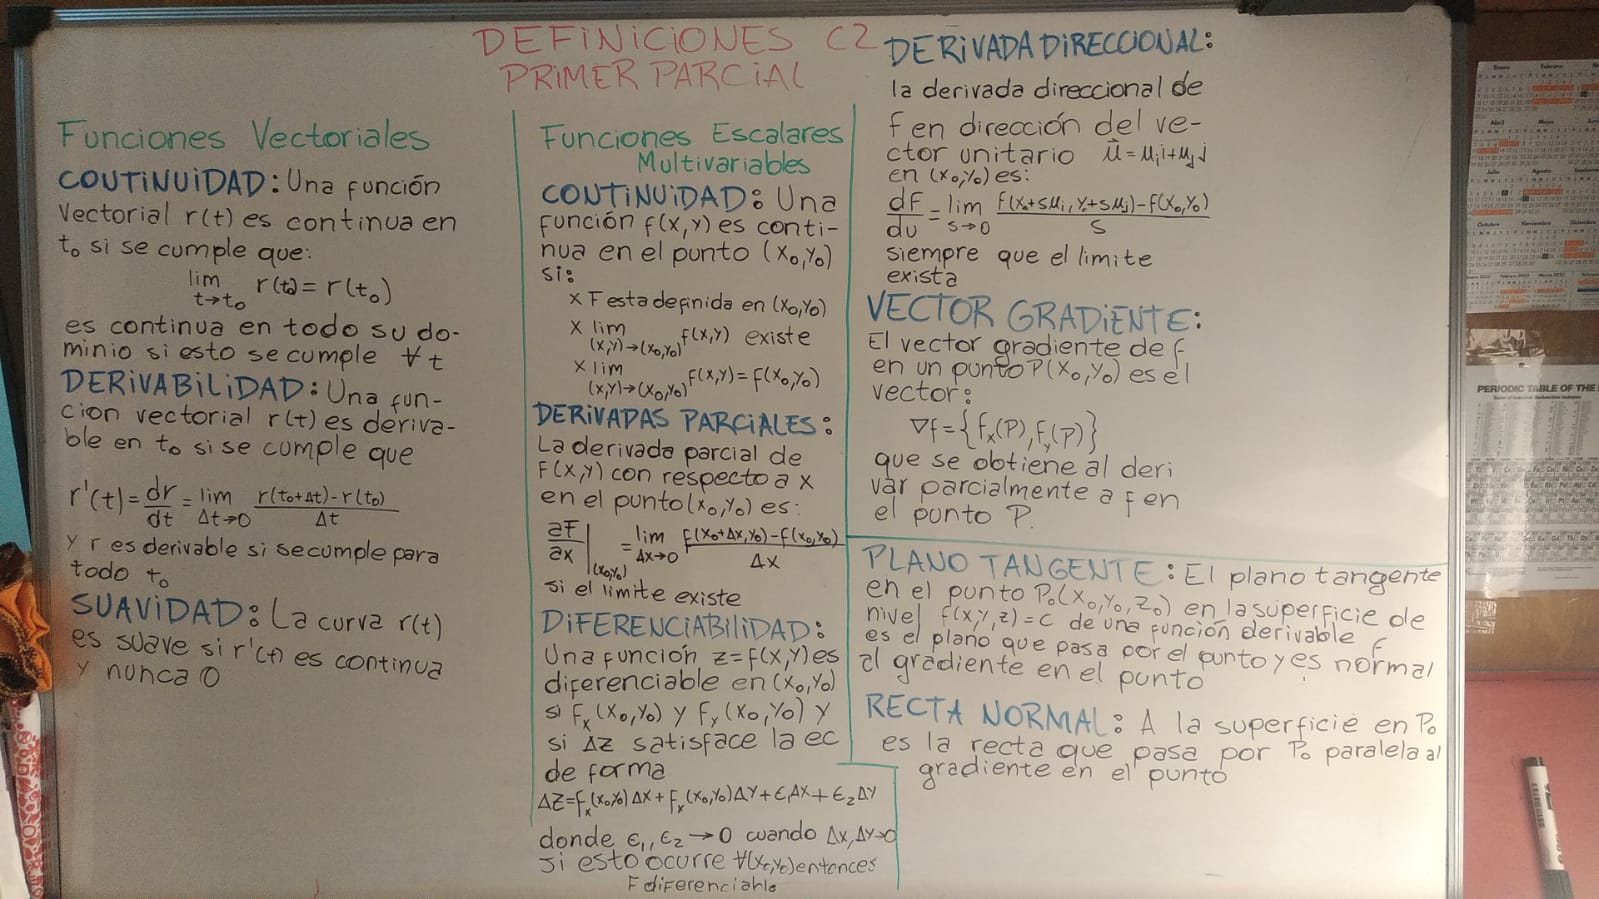 DEFINICIONES C2
PRIMER PARCIAL
Funciones Vectoriales
CONTINUIDAD: Una función
vectorial r(t) es continua en
t₀ si se cumple que:
lim r(t) = r(t₀)
t→t₀
es continua en todo su do-
minio si esto se cumple ∀ t
DERIVABILIDAD: Una fun-
cion vectorial r(t) es deriva-
ble en t₀ si se cumple que
r'(t) = dr/dt = lim Δt→0 r(t₀+Δt)-r(t₀)/Δt
y r es derivable si se cumple para
todo t₀
SUAVIDAD: La curva r(t)
es suave si r'(t) es continua
y nunca 0
Funciones Escalares
Multivariables
CONTINUIDAD: Una
función f(x,y) es conti-
nua en el punto (x₀,y₀)
si:
x F esta definida en (x₀,y₀)
x lim f(x,y) existe
(x,y)→(x₀,y₀)
x lim f(x,y) = f(x₀,y₀)
(x,y)→(x₀,y₀)
DERIVADAS PARCIALES:
La derivada parcial de
F(x,y) con respecto a x
en el punto (x₀,y₀) es:
∂F/∂x |(x₀,y₀) = lim Δx→0 f(x₀+Δx,y₀)-f(x₀,y₀)/Δx
si el limite existe
DIFERENCIABILIDAD:
Una función z=f(x,y) es
diferenciable en (x₀,y₀)
si Fx(x₀,y₀) y Fy(x₀,y₀) y
si Δz satisface la ec
de forma
ΔZ=fx(x₀,y₀)ΔX+fx(x₀,y₀)ΔY+ϵ₁ΔX+ϵ₂ΔY
donde ϵ₁,ϵ₂→0 cuando Δx,Δy→0
si esto ocurre ∀(x₀,y₀) entonces
F diferenciable
DERIVADA DIRECCIONAL:
la derivada direccional de
f en dirección del ve-
ctor unitario û=μᵢi+μⱼj
en (x₀,y₀) es:
dF/du = lim s→0 f(x₀+sμᵢ,y₀+sμⱼ)-f(x₀,y₀)/s
siempre que el limite
exista
VECTOR GRADIENTE:
El vector gradiente de f
en un punto P(x₀,y₀) es el
vector:
∇f={fx(P),Fy(P)}
que se obtiene al deri
var parcialmente a f en
el punto P.
PLANO TANGENTE: El plano tangente
en el punto P₀(x₀,y₀,z₀) en la superficie de
nivel f(x,y,z)=c de una función derivable f
es el plano que pasa por el punto y es normal
al gradiente en el punto
RECTA NORMAL: A la superficie en P₀
es la recta que pasa por P₀ paralela al
gradiente en el punto
Enero Febrero
Abril Mayo
Julio Agosto
Octubre Noviembre Diciembre
PERIODIC TABLE OF THE